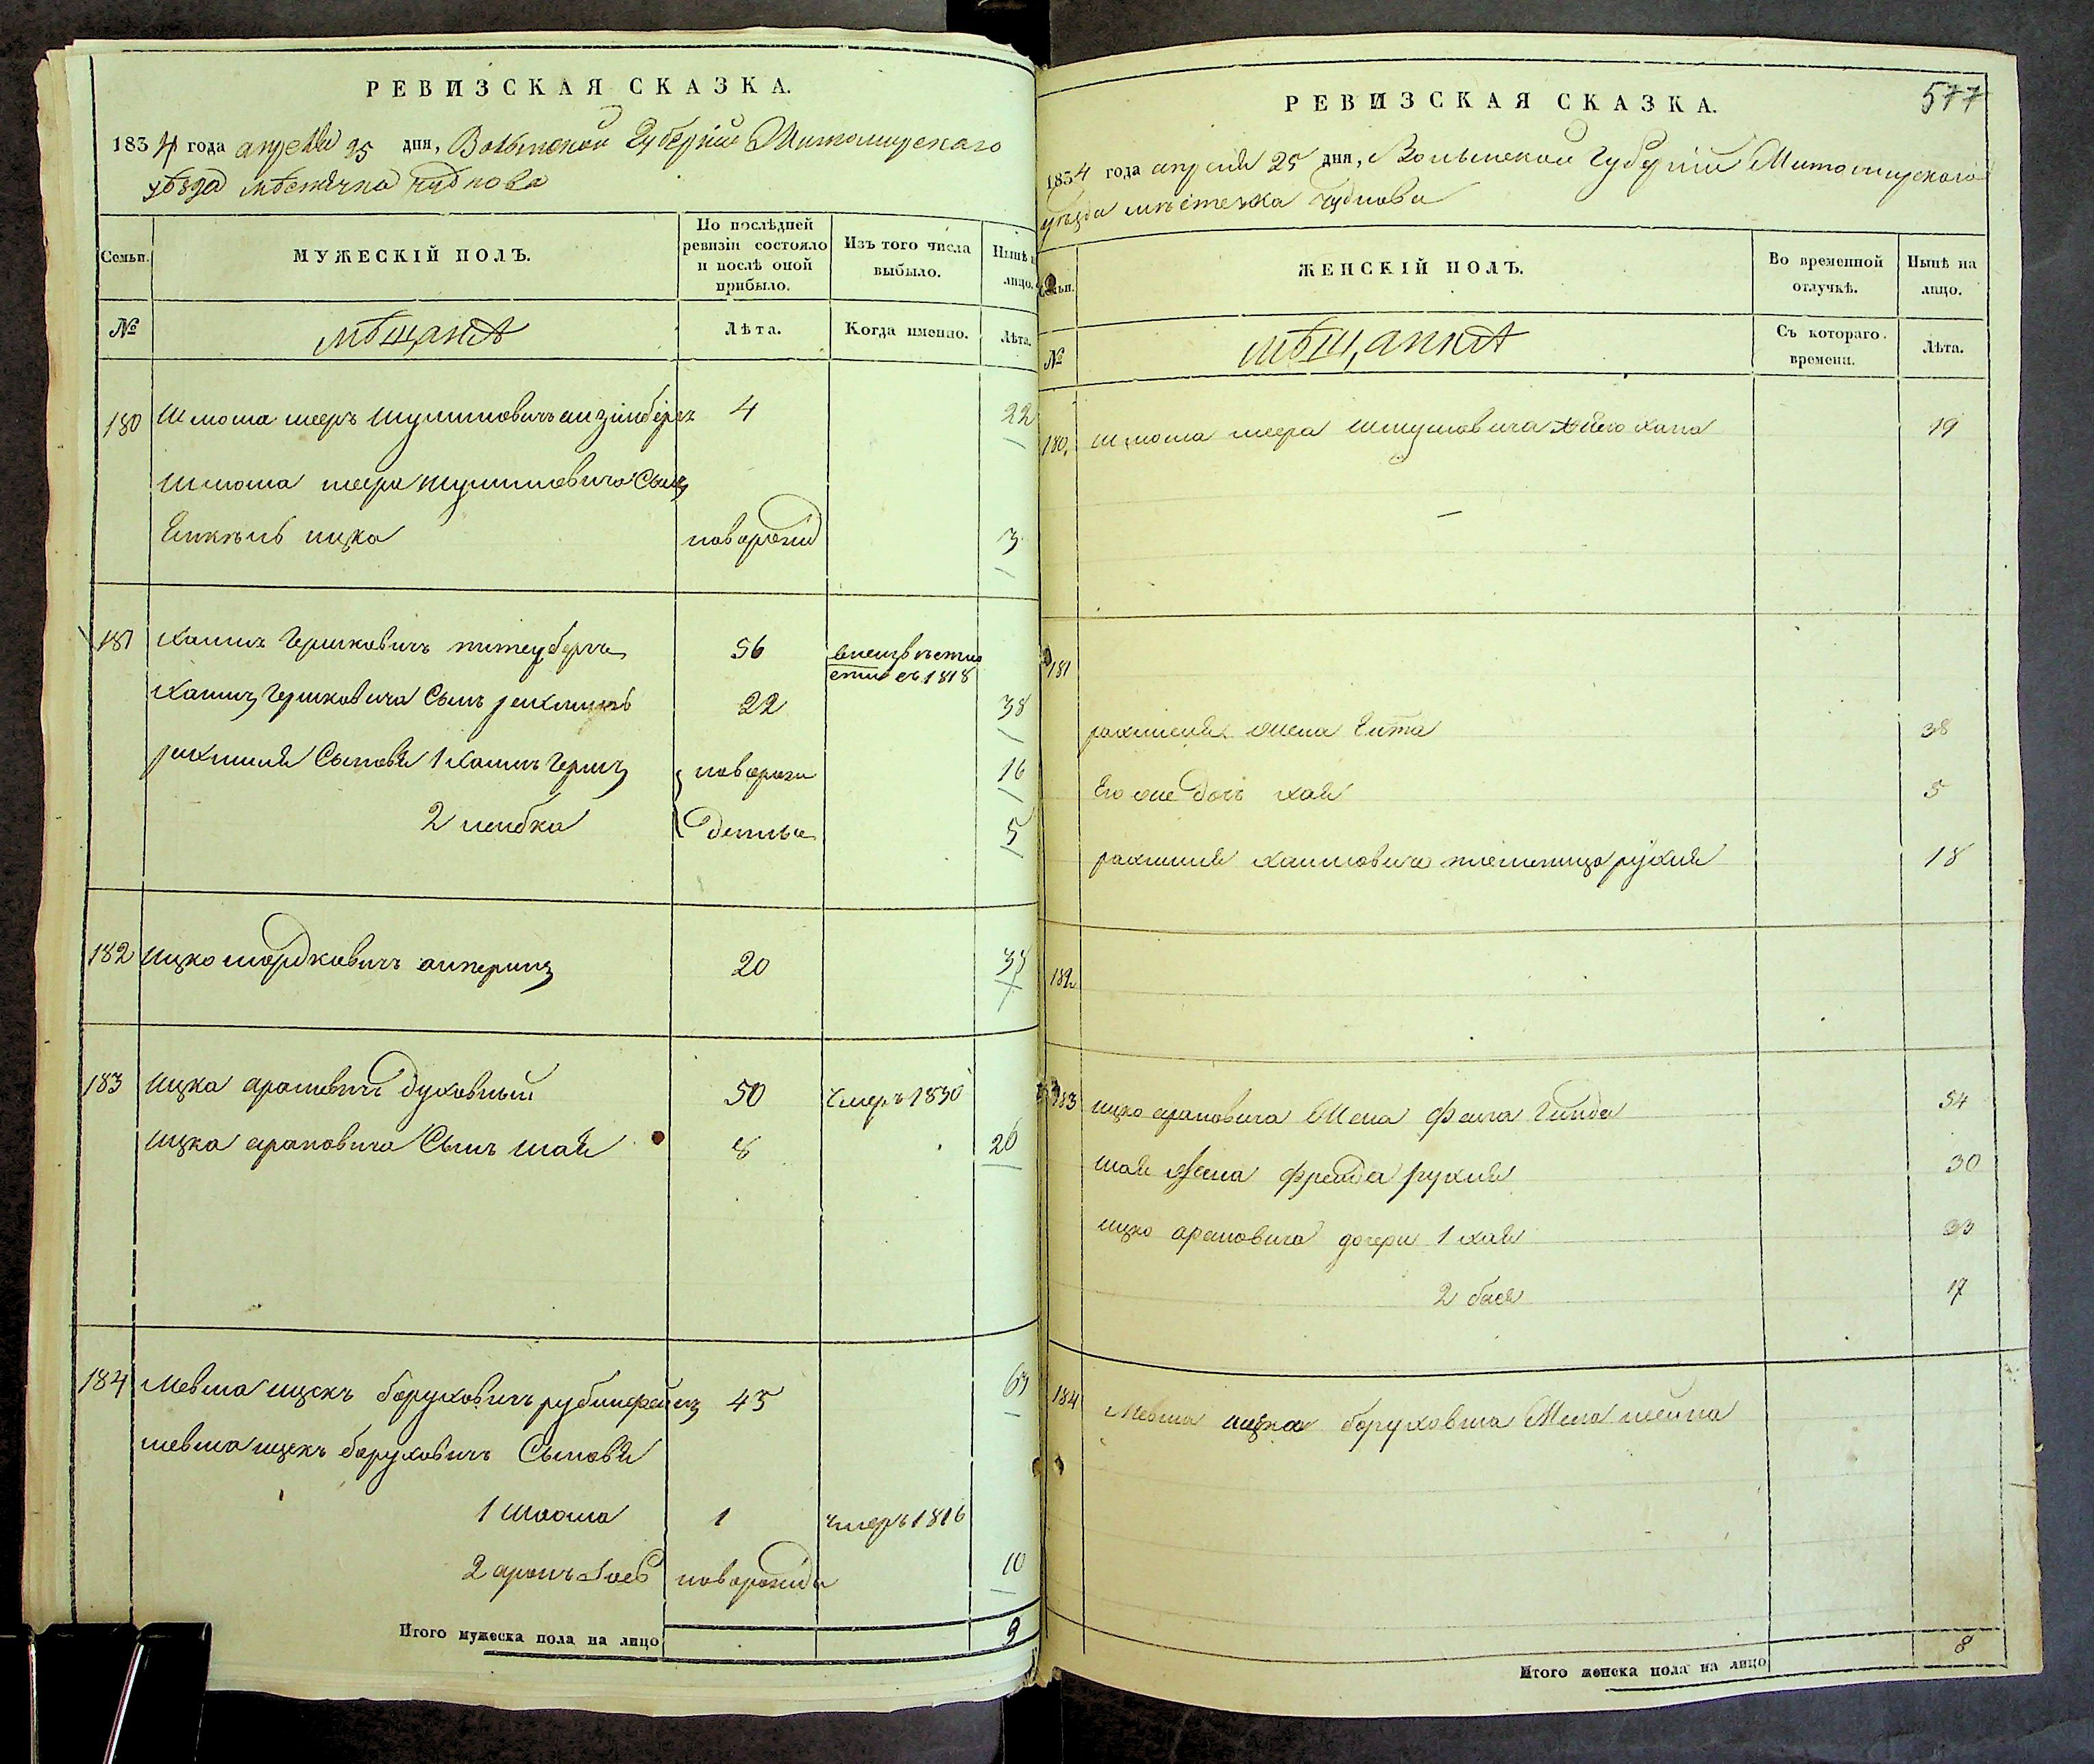 РЕВИЗСКАЯ СКАЗКА.
1834 года апреля 25 дня, Волынской Губерніи Житомирскаго
уѣзда мѣстечка Чуднова
Семьи.
МУЖЕСКІЙ ПОЛЪ.
По послѣдней ревизіи состояло и послѣ оной прибыло.
Изъ того числа выбыло.
Нынѣ на лицо.
№
мѣщане
Лѣта.
Когда именно.
Лѣта.
180 Шмошка 4 22
сынъ
ицка новорожд 3
181 Хаимъ Гершковичъ 56 1818
Хаимъ Гершковича Сынъ 22 38
Сыновя 1 Хаимъ Гершъ новорож 16
2 лейбка денные 5
182 Ицко мордковичъ 20 38
183 Ицка ароновичъ духовный 50 умеръ 1830
Ицка ароновича Сынъ шая 8 26
184 Мевша ицекъ боруховичъ 45 63
мевша ицекъ боруховичъ Сыновя
1 1 умеръ 1816
2 аронъ новорожде 10
Итого мужеска пола на лицо 9
577
РЕВИЗСКАЯ СКАЗКА.
1834 года апреля 25 дня, Волынской Губерніи Житомирскаго
уѣзда мѣстечка Чуднова
Семьи.
ЖЕНСКІЙ ПОЛЪ.
Во временной отлучкѣ.
Нынѣ на лицо.
№
мѣщанкѣ
Съ котораго времени.
Лѣта.
180. хана 19
181
жена Ента 38
Его же дочь хая 5
хаимовича племеница рухля 18
182
183 ицко ароновича Жена фейга Гинда 54
шая Жена фрейда рухля 30
ицко ароновича дочери 1 хая 23
2 бася 17
184 Мевша ицка боруховича Жена
Итого женска пола на лицо 8